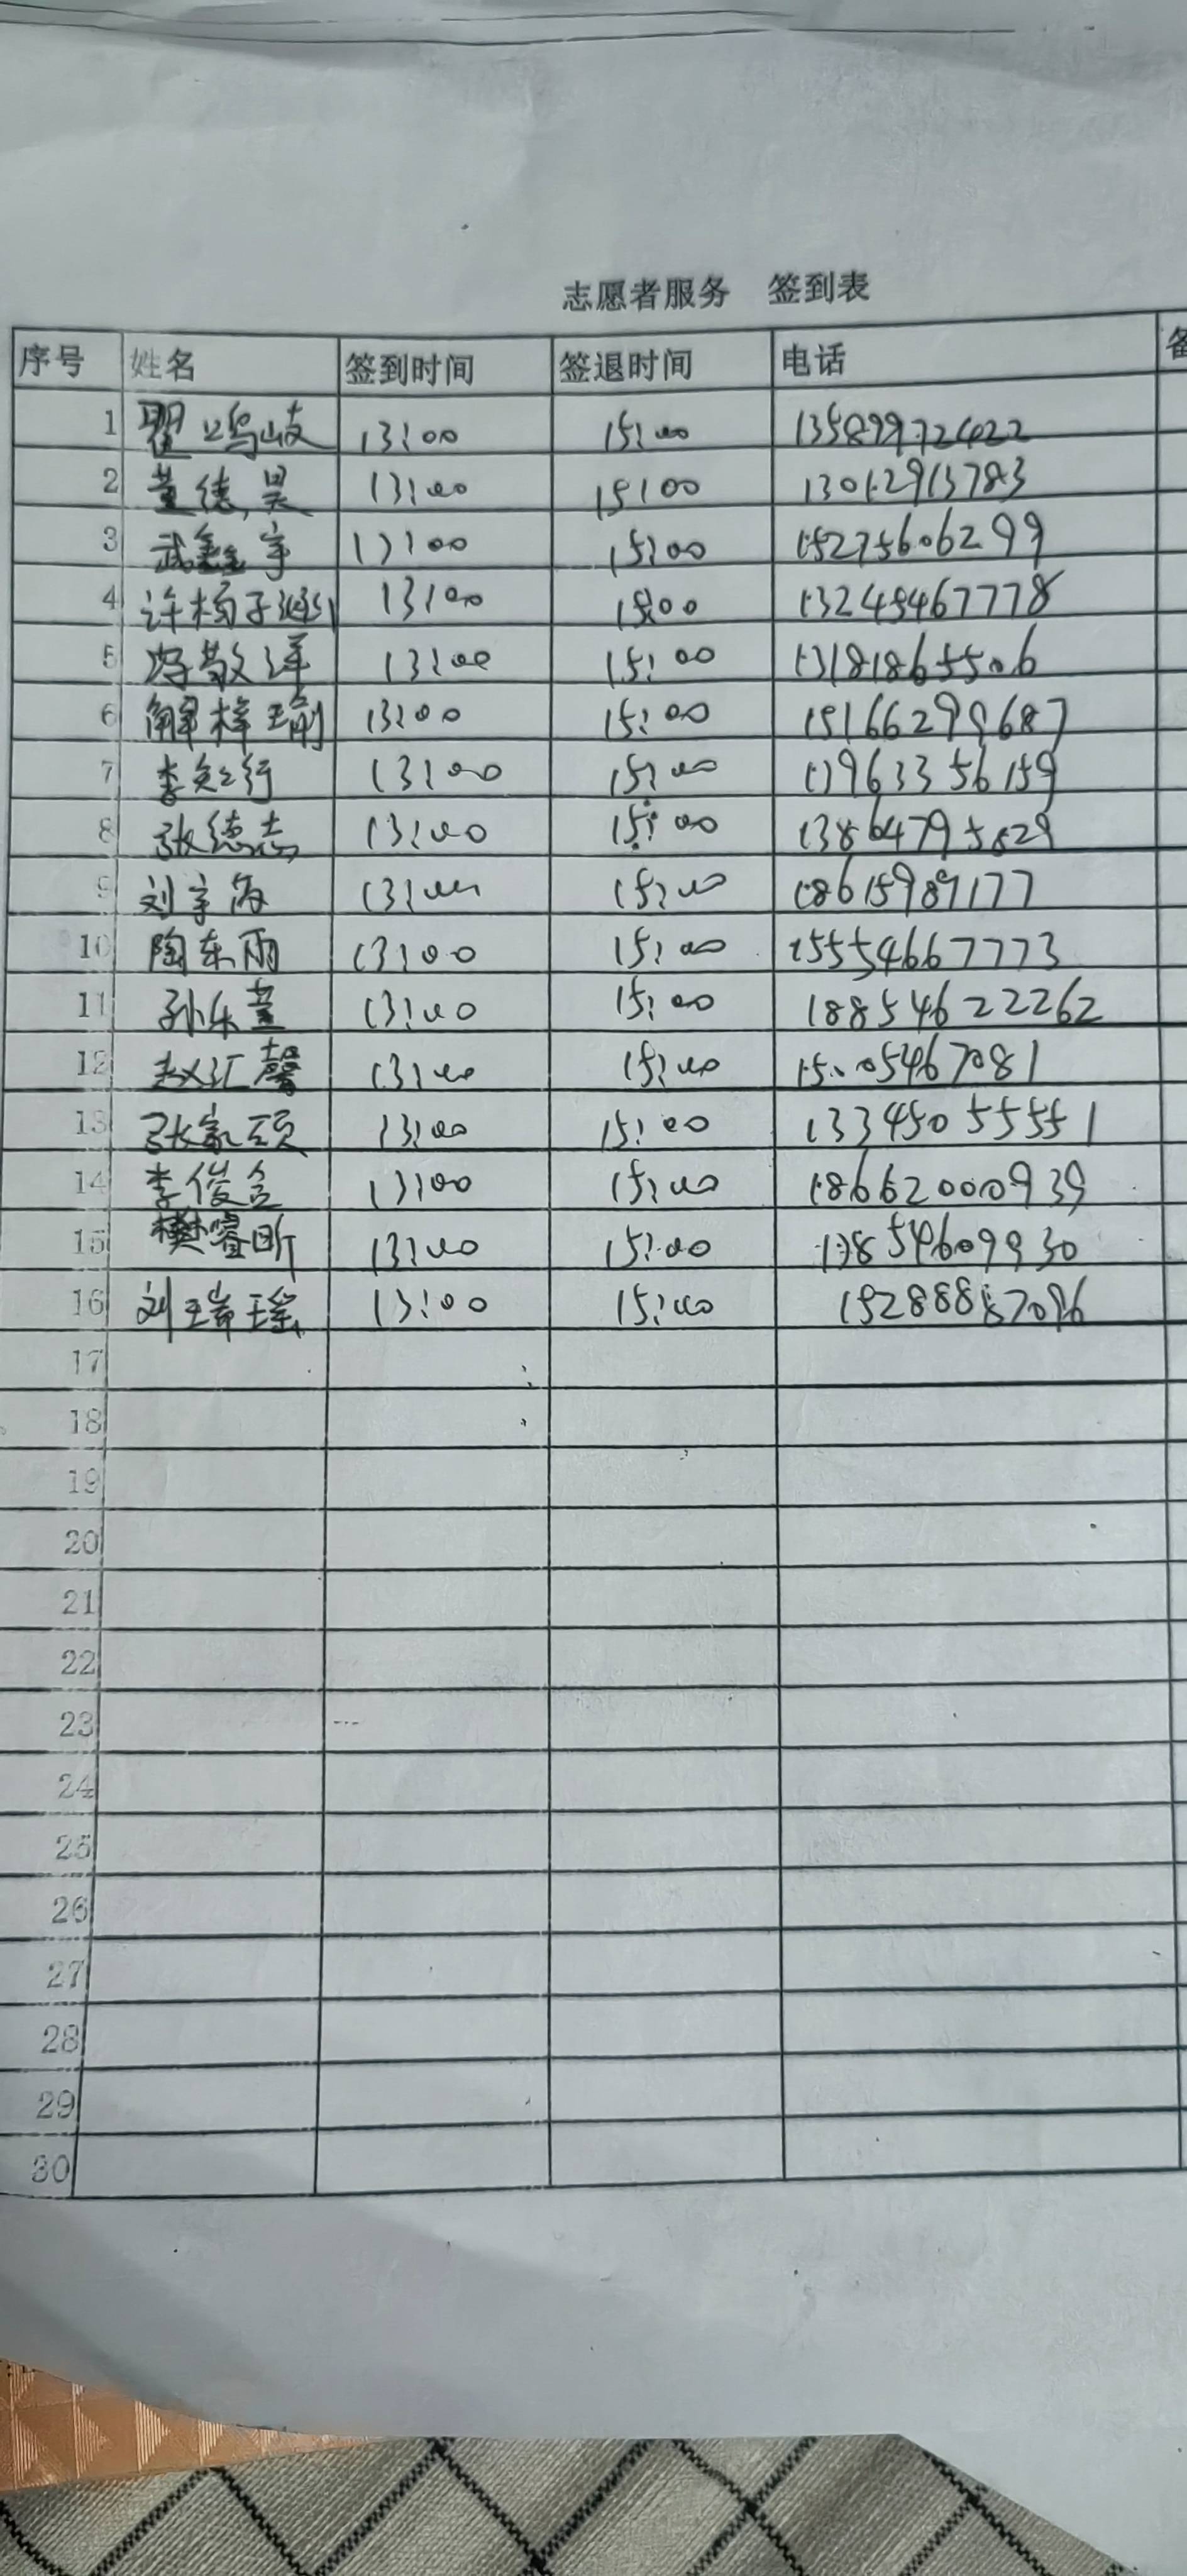 志愿者服务 签到表
序号 姓名 签到时间 签退时间 电话 备
1 翟 13:00 15:00 13589972422
2 董德昊 13:00 15:00 13012913783
3 武鑫宇 13:00 15:00 15275606299
4 许杨子 13:00 15:00 13245467778
5 敬 13:00 15:00 13181865506
6 解梓瑜 13:00 15:00 15166299687
7 李知行 13:00 15:00 13963356159
8 张德志 13:00 15:00 13864795829
9 刘宇 13:00 15:00 18615989177
10 陶东雨 13:00 15:00 15554667773
11 孙乐萱 13:00 15:00 18854622262
12 赵汇馨 13:00 15:00 15005467081
13 张家硕 13:00 15:00 13345055551
14 李俊 13:00 15:00 18662000939
15 樊睿昕 13:00 15:00 13854609930
16 刘瑞瑶 13:00 15:00 15288887096
17
18
19
20
21
22
23
24
25
26
27
28
29
30